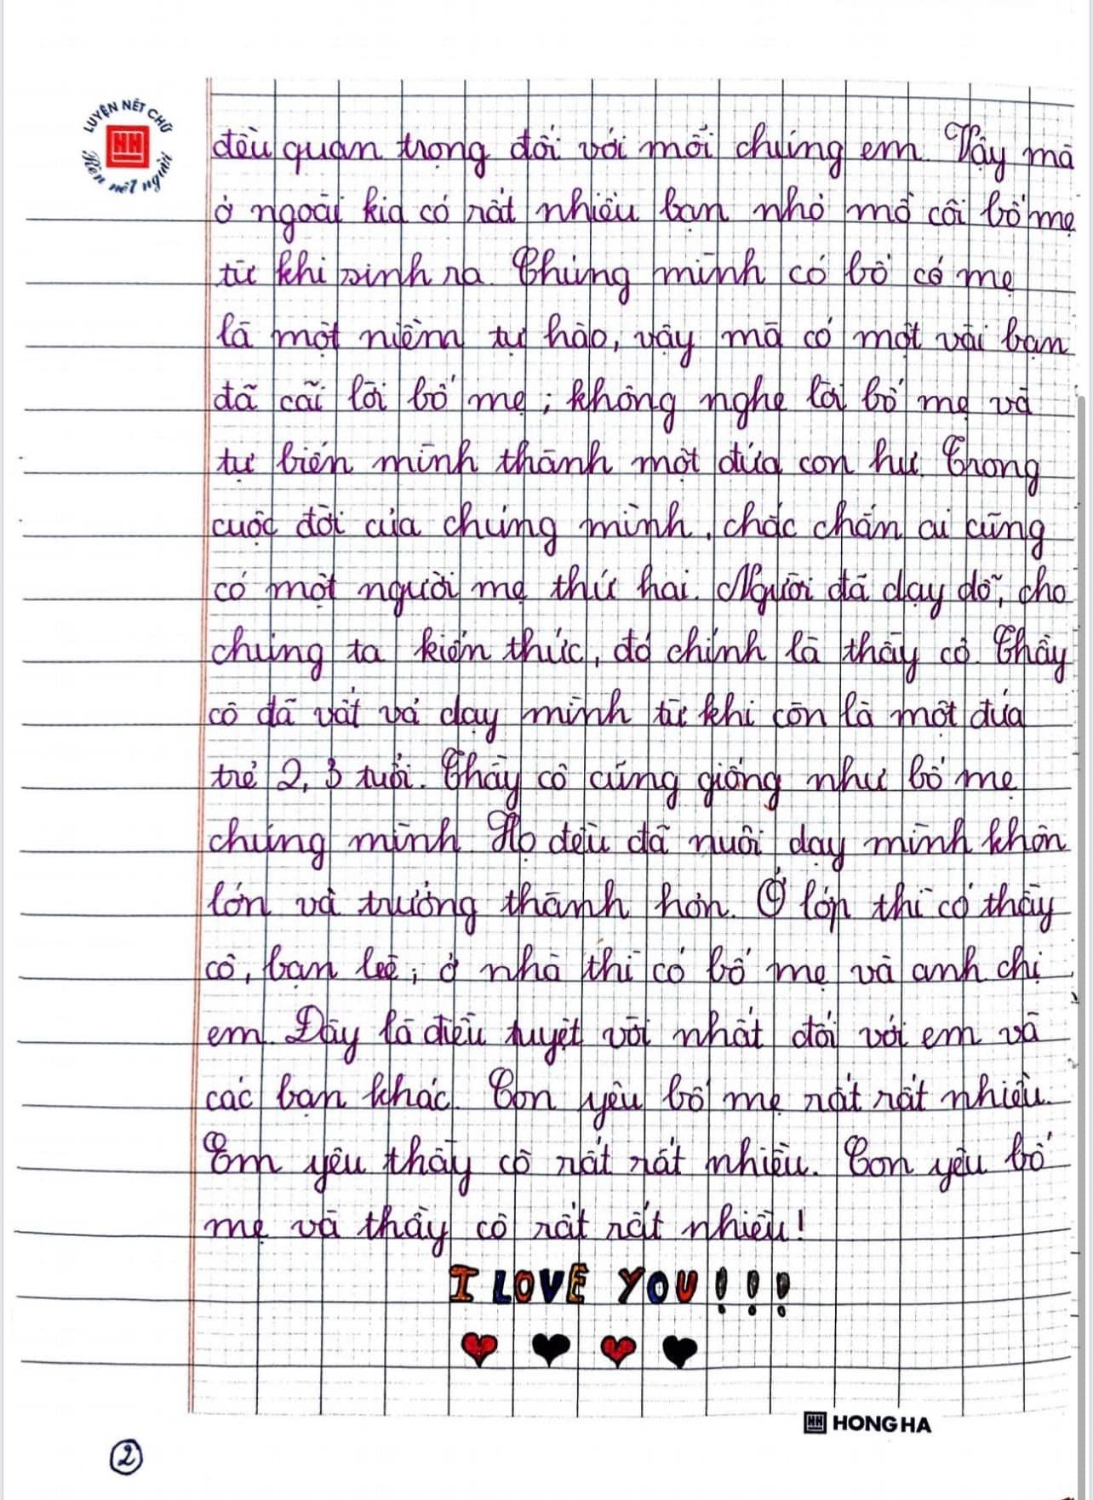 LUYỆN NÉT CHỮ
HH
Rèn nết người
đều quan trọng đối với mỗi chúng em. Vậy mà
ở ngoài kia có rất nhiều bạn nhỏ mồ côi bố mẹ
từ khi sinh ra. Chúng mình có bố có mẹ
là một niềm tự hào, vậy mà có một vài bạn
đã cãi lời bố mẹ; không nghe lời bố mẹ và
tự biến mình thành một đứa con hư. Trong
cuộc đời của chúng mình, chắc chắn ai cũng
có một người mẹ thứ hai. Người đã dạy dỗ, cho
chúng ta kiến thức, đó chính là thầy cô. Thầy
cô đã vất vả dạy mình từ khi còn là một đứa
trẻ 2, 3 tuổi. Thầy cô cũng giống như bố mẹ
chúng mình. Họ đều đã nuôi dạy mình khôn
lớn và trưởng thành hơn. Ở lớp thì có thầy
cô, bạn bè; ở nhà thì có bố mẹ và anh chị
em. Đây là điều tuyệt vời nhất đối với em và
các bạn khác. Con yêu bố mẹ rất rất nhiều.
Em yêu thầy cô rất rất nhiều. Con yêu bố
mẹ và thầy cô rất rất nhiều!
I LOVE YOU!!!
HH HONG HA
2